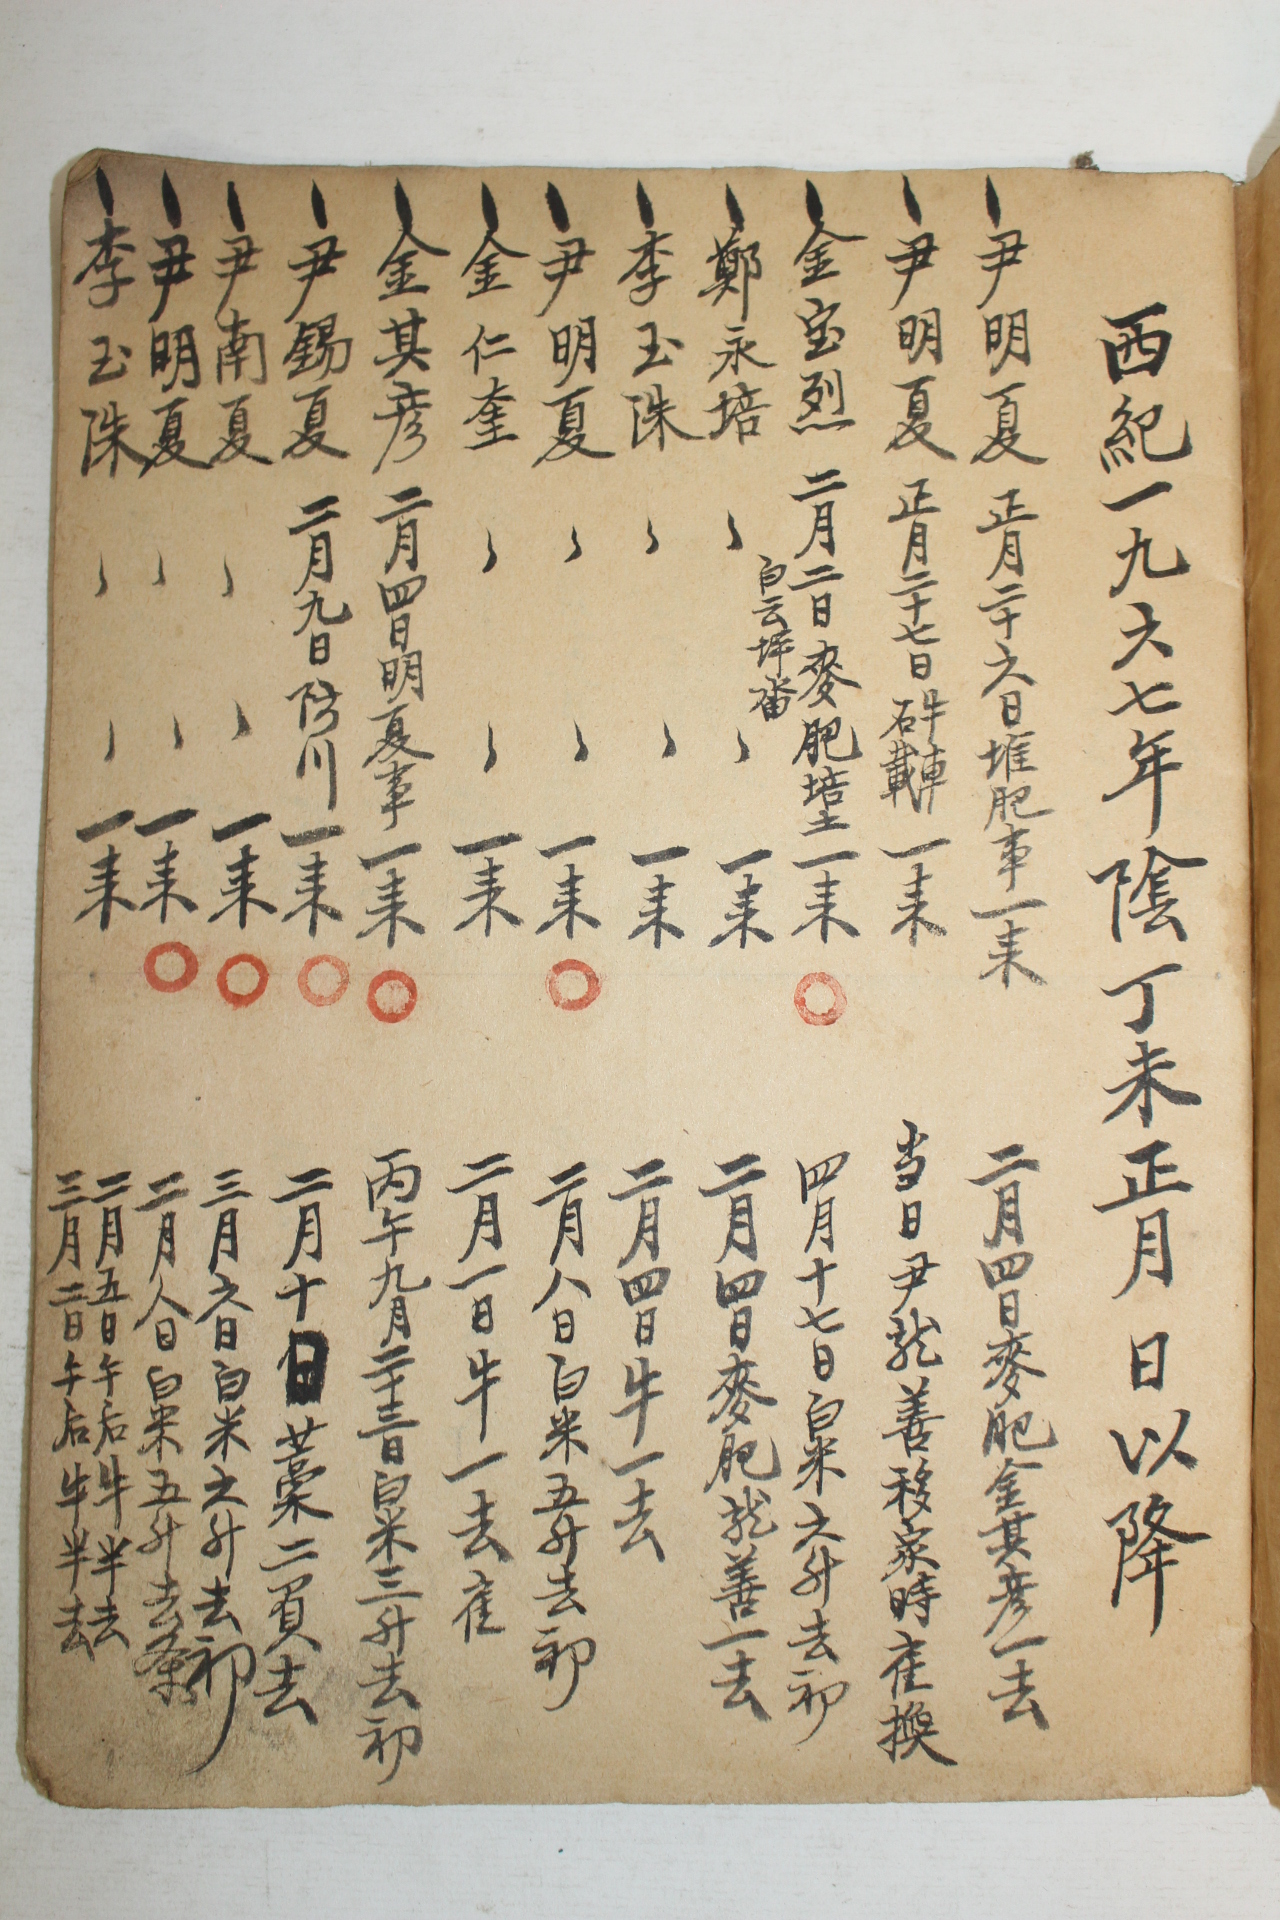 西紀一九六七年陰丁未正月 日以降
尹明夏 正月二十六日堆肥事一来 二月四日麥肥金其彦一去
尹明夏 正月二十七日 牛車 石載 一来 当日尹龍善移家時隺換
金宝烈 二月二日麥肥培土一来 四月十七日白米六升去初
白云坪畓
鄭永培 〻 〻 一来 二月四日麥肥龍善一去
李玉洙 〻 〻 一来 二月四日牛一去
尹明夏 〻 〻 一来 二月八日白米五升去初
金仁奎 〻 〻 一来 二月一日牛一去隺
金其彦 二月四日明夏事一来 丙午九月二十三日白米三升去初
尹錫夏 二月九日防川一来 二月十日藁二負去
尹南夏 〻 〻 一来 三月六日白米六升去初
尹明夏 〻 〻 一来 二月八日白米五升去条
李玉洙 〻 〻 一来 二月五日午后牛半去
三月二日午后牛半去